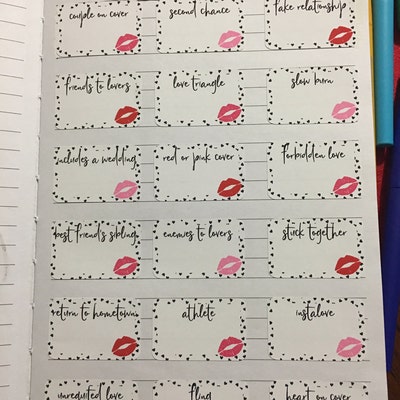 couple on cover
second chance
fake relationship
friends to lovers
love triangle
slow burn
includes a wedding
red or pink cover
forbidden love
best friend's sibling
enemies to lovers
stuck together
return to hometown
athlete
instalove
unrequited love
fling
heart on cover